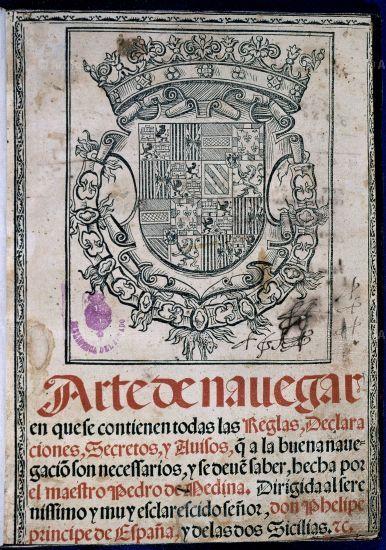 Arte de nauegar
en que se contienen todas las Reglas, Declara
ciones, Secretos, y Auisos, q̃ a la buena naue-
gaciõ son necessarios, y se deuẽ saber, hecha por
el maestro Pedro de Medina. Dirigida al sere
nissimo y muy esclarescido señor, don Phelipe
principe de España, y de las dos Sicilias. ⁊c.